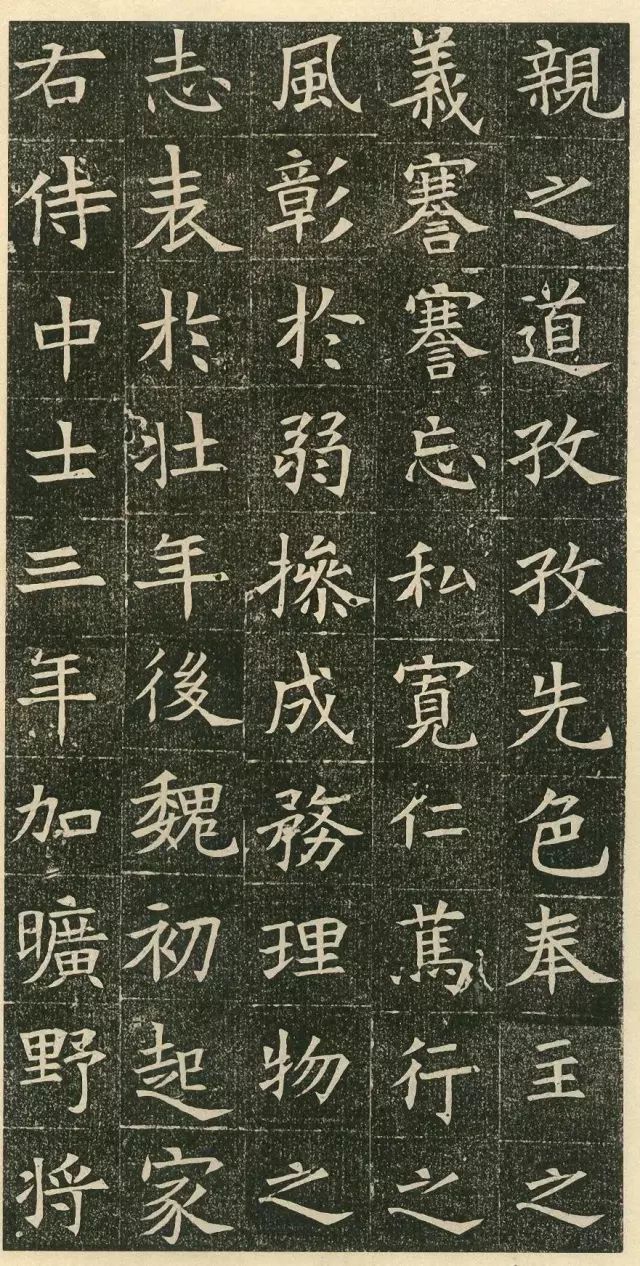 親之道孜孜先色奉主之
義謇謇忘私寬仁篤行之
風彰於弱摻成務理物之
志表於壯年後魏初起家
右侍中士三年加曠野将